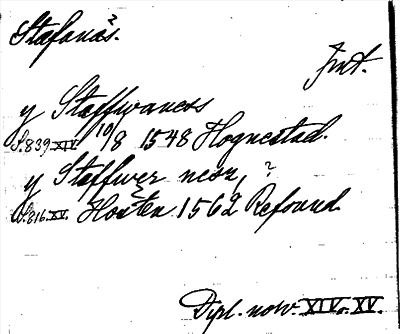 Stafanås?
Int.
y Staffwaness
S.839 XIV. 10/8 1548 Hognestad.
y Staffwer nesn, ?
S.816. XV. Hosten 1562 Refsund
Dipl. norv. XIV o. XV.